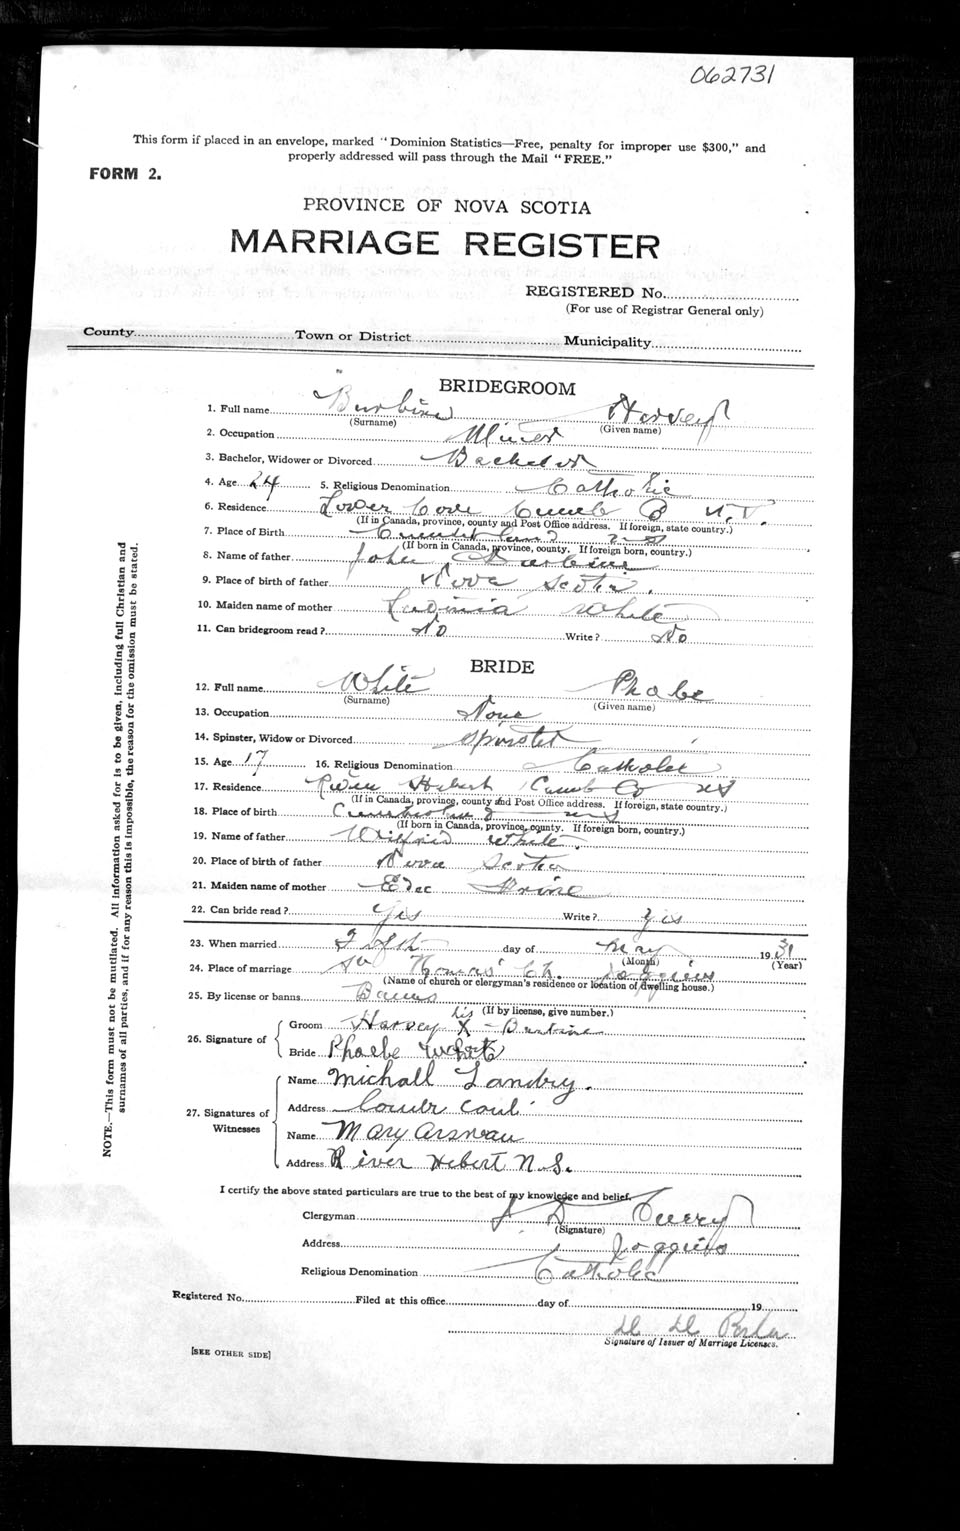 062731
This form if placed in an envelope, marked "Dominion Statistics—Free, penalty for improper use $300," and
properly addressed will pass through the Mail "FREE."
FORM 2.
PROVINCE OF NOVA SCOTIA
MARRIAGE REGISTER
REGISTERED No.
(For use of Registrar General only)
County Town or District Municipality
BRIDEGROOM
1. Full name Burbine Harvey
(Surname) (Given name)
2. Occupation Miner
3. Bachelor, Widower or Divorced Bachelor
4. Age 24 5. Religious Denomination Catholic
6. Residence Lower Cove Cumb Co
(If in Canada, province, county and Post Office address. If foreign, state country.)
7. Place of Birth Cumberland
(If born in Canada, province, county. If foreign born, country.)
8. Name of father John Burbine
9. Place of birth of father Nova Scotia.
10. Maiden name of mother Lavinia White
11. Can bridegroom read? No Write? No
BRIDE
12. Full name White Phabe
(Surname) (Given name)
13. Occupation None
14. Spinster, Widow or Divorced Spinster
15. Age 17 16. Religious Denomination Catholic
17. Residence River Hebert Cumb Co NS
(If in Canada, province, county and Post Office address. If foreign, state country.)
18. Place of birth Cumberland NS
(If born in Canada, province, county. If foreign born, country.)
19. Name of father Wilfrid White.
20. Place of birth of father Nova Scotia
21. Maiden name of mother
22. Can bride read? Yes Write? Yes
23. When married day of May 1931
(Month) (Year)
24. Place of marriage St Thomas' Ch. Joggins
(Name of church or clergyman's residence or location of dwelling house.)
25. By license or banns Banns
(If by license, give number.)
26. Signature of
Groom Harvey his X Burbine
Bride Phaebe White
27. Signatures of Witnesses
Name Michall Landry.
Address Lower Cove
Name Mary Arsneau
Address River Hebert N.S.
I certify the above stated particulars are true to the best of my knowledge and belief.
Clergyman
(Signature)
Address Joggins
Religious Denomination Catholic
Registered No. Filed at this office day of 19
Signature of Issuer of Marriage Licenses.
[SEE OTHER SIDE]
NOTE.—This form must not be mutilated. All information asked for is to be given, including full Christian and
surnames of all parties, and if for any reason this is impossible, the reason for the omission must be stated.